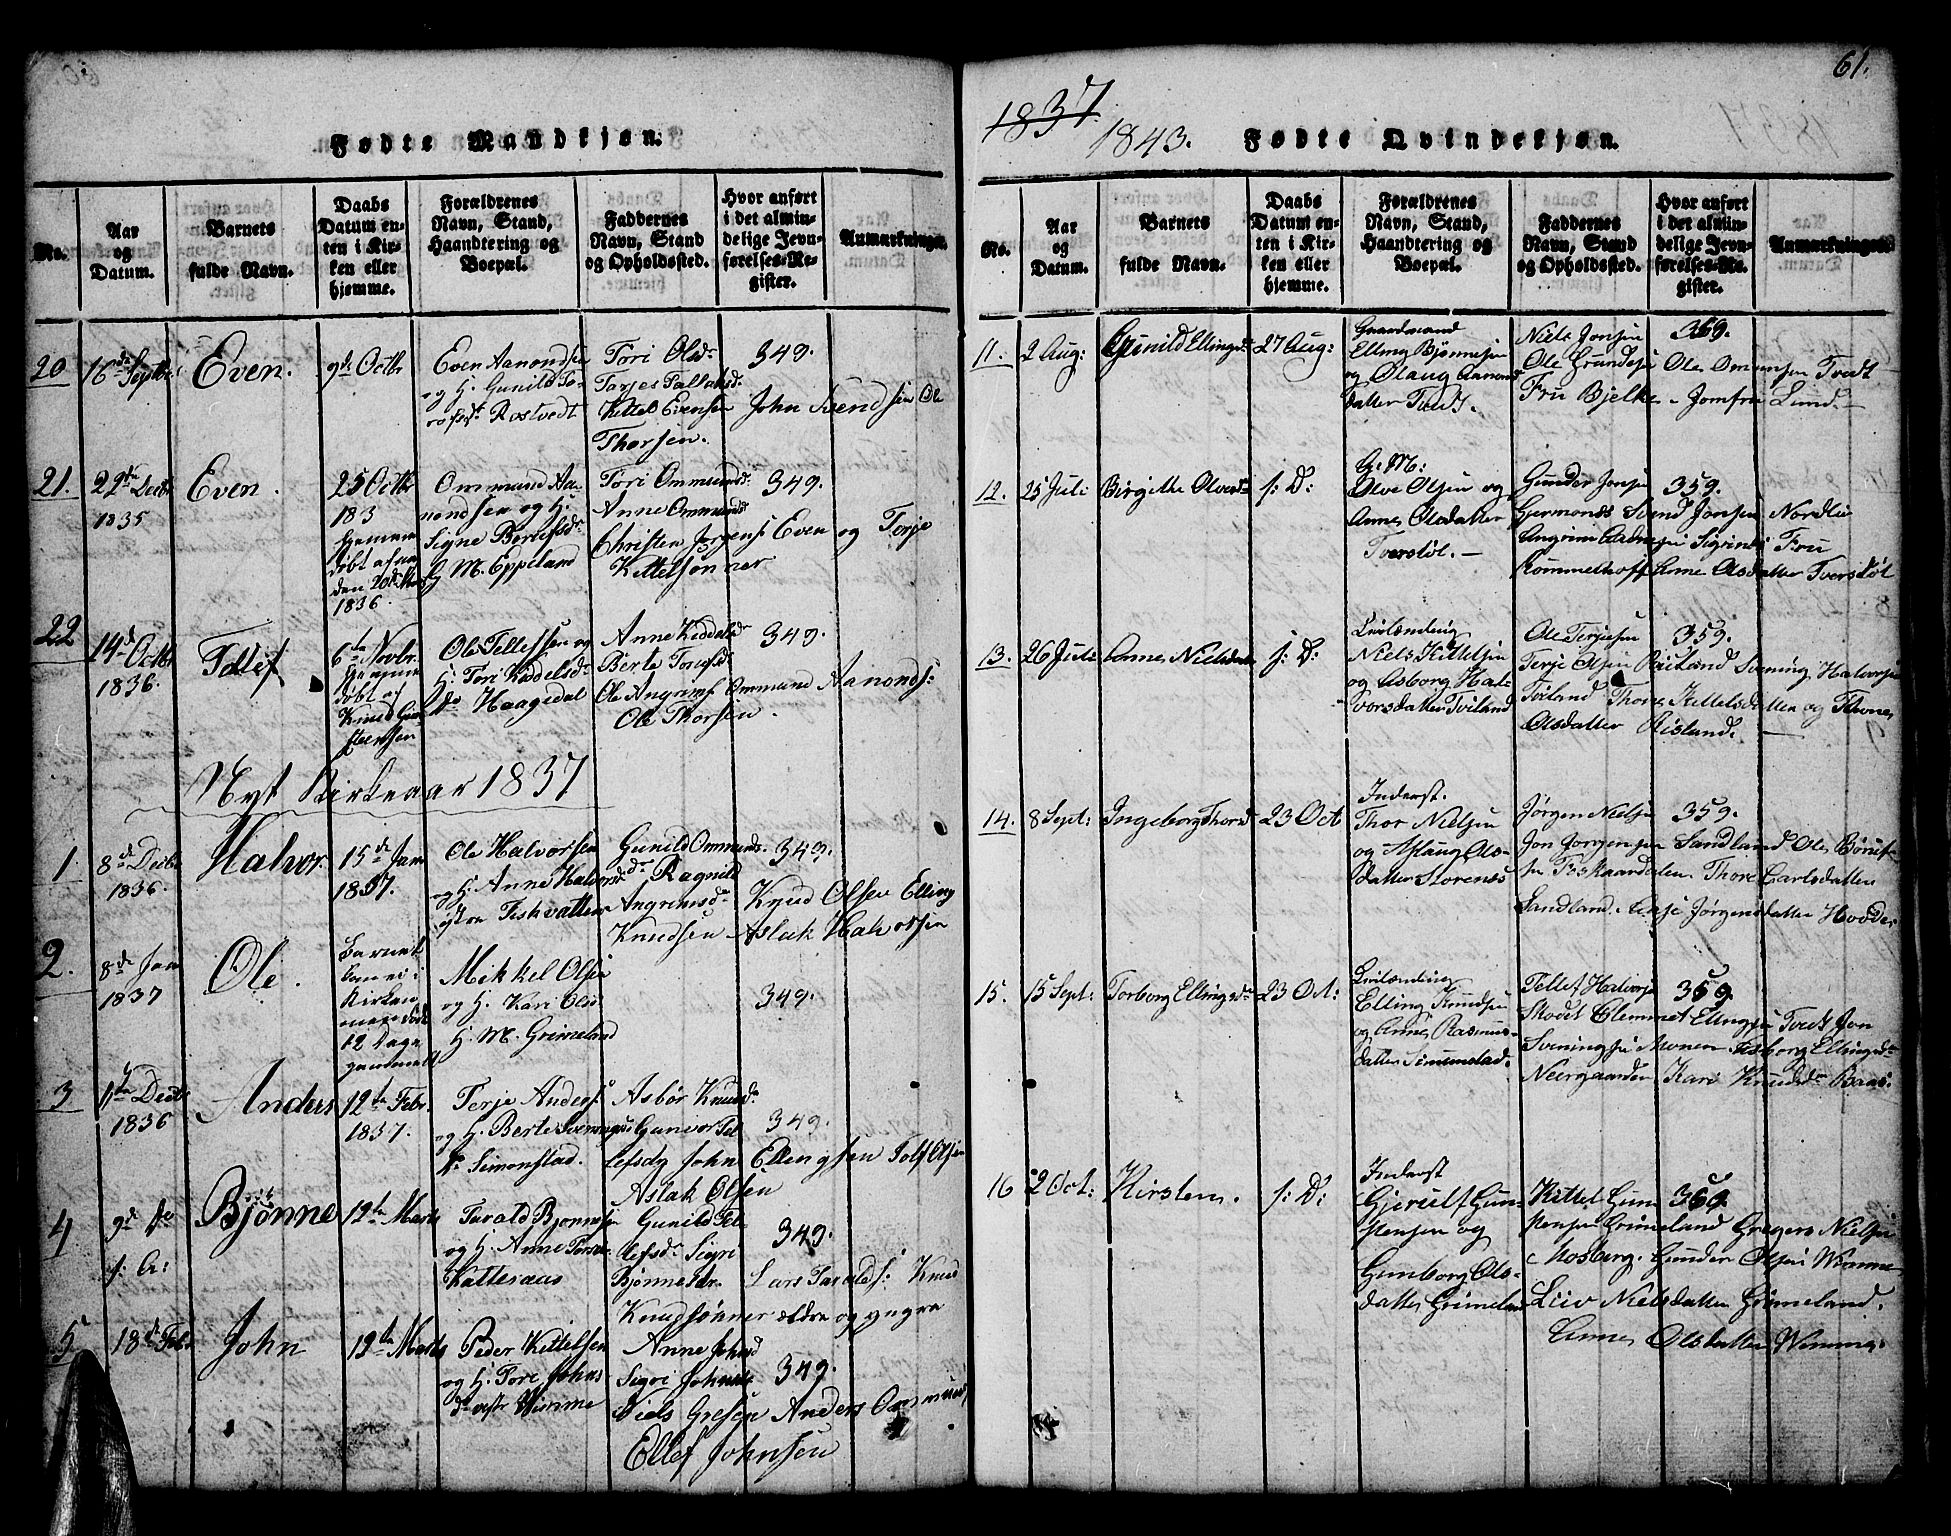 61.
Fødte Mandkjøn.
No.
Aar
og
Datum.
Barnets
fulde Navn.
Daabs
Datum en-
ten i Kir-
ken eller
hjemme.
Forældrenes
Navn, Stand,
Haandtering og
Boepæl.
Faddernes
Navn, Stand
og Opholdssted.
Hvor anført
i det almin-
delige Jevn-
førelses-Re-
gister.
Anmærkninger.
20
16de Septbr
Even.
9de Octbr
Even Aanondsen
og H. Gunild To-
Rostvedt
Tori Olsdr
Tarjes Tallaksd.
Kittel Evensen
Thorsen.
349.
John Svendsen Ole
21.
22de Decbr
1835
Even.
25 Octbr
183
hjemme
døbt af
den 20de
1836.
Ommund Aa-
nondsen og H.
Signe Berulfsdr
G. M. Eppeland
Tori Ommundsd.
Anne Ommunds
Christen Jørgens Even og Terje
Kittelsønner
349.
22
14de Octbr
1836.
Tellef
6te Novbr.
hjemme
døbt af
Knud Gun-
stensen
Ole Tellefsen og
H. Tori Kiddelsd.
Haagedal
Anne Kiddelsd.
Berte Tomsd
Ole Angrimf Ommund Aanonds:
Ole Thorsen.
349.
Nyt Kirkeaar 1837
1
8de Decbr
1836.
Halvor.
15de Jan
1837.
Ole Halvorsen
og H. Anne Halvorsd.
Fiskvatten
Gunild Ommunds.
dr Ragnild
Angrimsd. Knud Olsen Elling
Knudsen Aslak Halvorsen
343.
2.
8de Jan
1837
Ole.
Barnet
kom ei i
Kirken
men døde
12 Dage
gammelt
Mikkel Olsen
og H. Kari Olsd
G. M. Grimeland
349.
3
11te Decbr
1836
Anders
12te Febr.
1837.
Terje Anders.
og H. Berte Svenings
dr Simonstad.
Asbør Knudd.
Gunvor Tel-
lefsdr John Ellingsen Tolf Olsen
Aslak Olsen
349.
4
9de do
s: A:
Bjønne
12te Marts
Tarald Bjønnesen
og H. Anne Torsd.
Katteraas
Gunild Tel-
lefsdr Sigri
Bjønnesdr. Lars Taralds: Knud
Knudsønner ældre og yngre
349.
5
18de Febr
John
19te Marts
Peder Kittelsen
og H. Tori Johns
dr Wimme
Anne Johnsd
Sigri Johnsd
Niels Gresen Anders Ommunds
Ellef Johnsen
349.
1837.
1843.
Fødte Qvindekjøn.
No.
Aar
og
Datum.
Barnets
fulde Navn.
Daabs
Datum en-
ten i Kir-
ken eller
hjemme.
Forældrenes
Navn, Stand,
Haandtering og
Boepæl.
Faddernes
Navn, Stand
og Opholdssted.
Hvor anført
i det almin-
delige Jevn-
førelses-Re-
gister.
Anmærkninger.
11.
2 Aug:
Gunild Ellingsd.
27 Aug:
Gaardmand
Elling Bjønnesen
og Olaug Aanonds
datter Tvedt.
Niels Jonsen
Ole Gundesen Ole Omunsen Tvedt
Fru Bjelke - Jomfru Lund. -
369.
12.
25 Juli
Birgithe Olvesd.
s: D:
G: M:
Olve Olsen og
Anne Olsdatter
Tversløl. -
Gunder Jonsen
Germonds Svend Jonsen Nordlie
Angrim Sigrines Fru
Rommelhoff Anne Olsdatter Tversløl
359.
13.
26 Juli
Anne Nielsdatt
s: D:
Livlænding
Niels Kittelsen
og Asborg Hal-
vorsdatter Tviland
Ole Terjesen
Terje Olsen Risland Svening Halvorsen
Tviland Thone Kittelsdatter og Thone
Olsdatter Risland. -
359.
14.
8 Sept:
Ingeborg Thorsd
23 Oct
Inderst.
Thor Nielsen
og Aslaug Ols-
datter Storenes
Jørgen Nielsen
Jon Jørgensen Sandland Ole Børuf-
sen Foskaardalen Thore Carlsdatter
Sandland. Jørgensdatter Hovde.
359.
15.
15 Sept:
Torborg Ellingsdr
23 Oct:
Livlænding
Elling Knudsen
og Anne Rasmus-
datter Simonstad.
Tellef Halvorse
Skodet Clemmet Ellingsen Tvedt Jon
Sveningsen Monen Asborg Ellingsdr
Neergaarden Kari Knudsdr Baas.
359.
16
2 Oct:
Kirsten.
s: D:
Inderst
Gjerulf Gun-
stensen og
Gunborg Ols-
datter Grimeland
Kittel Gun-
stensen Grimeland Gregers Nielsen
Mosberg. Gunder Olsen Wimme
Liv Nielsdatter Grimeland.
Anne Olsdatter Wimme.
359.